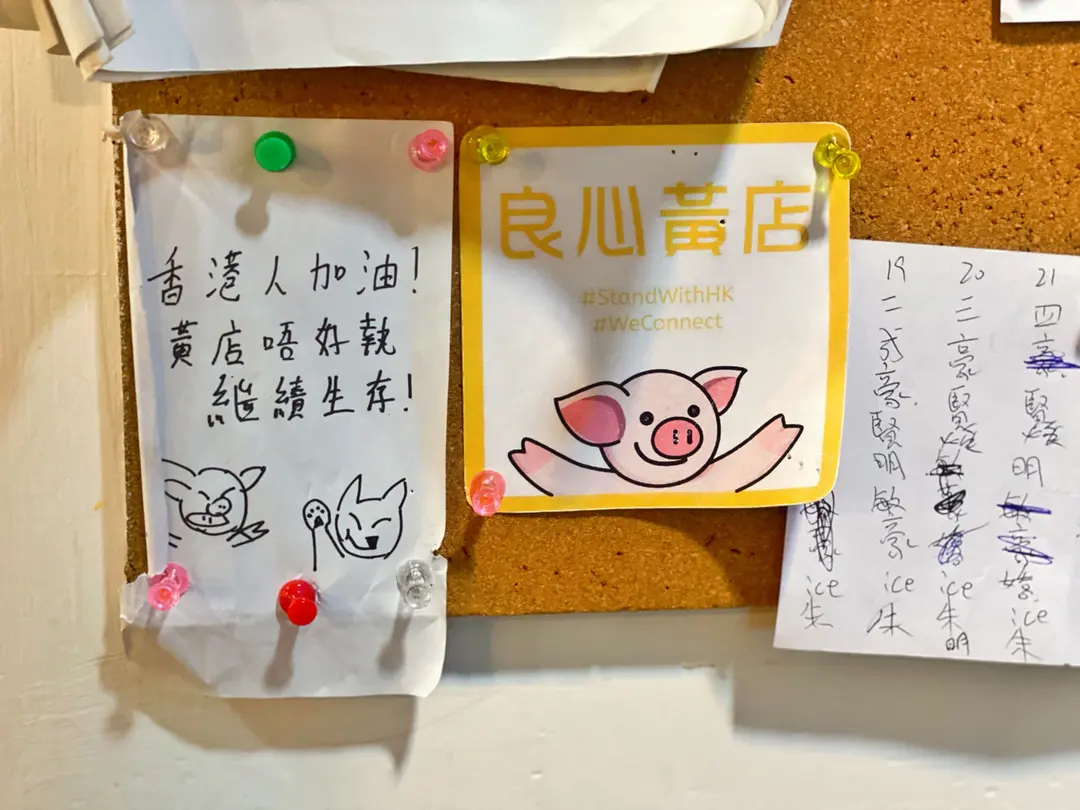 香港人加油!
黃店唔好執
繼續生存!
良心黃店
#StandWithHK
#WeConnect
ice
朱
19
二
豪
賢
明
敏
豪
ice
朱
20
三
豪
賢
ice
朱
明
21
四
賢
明
ice
朱